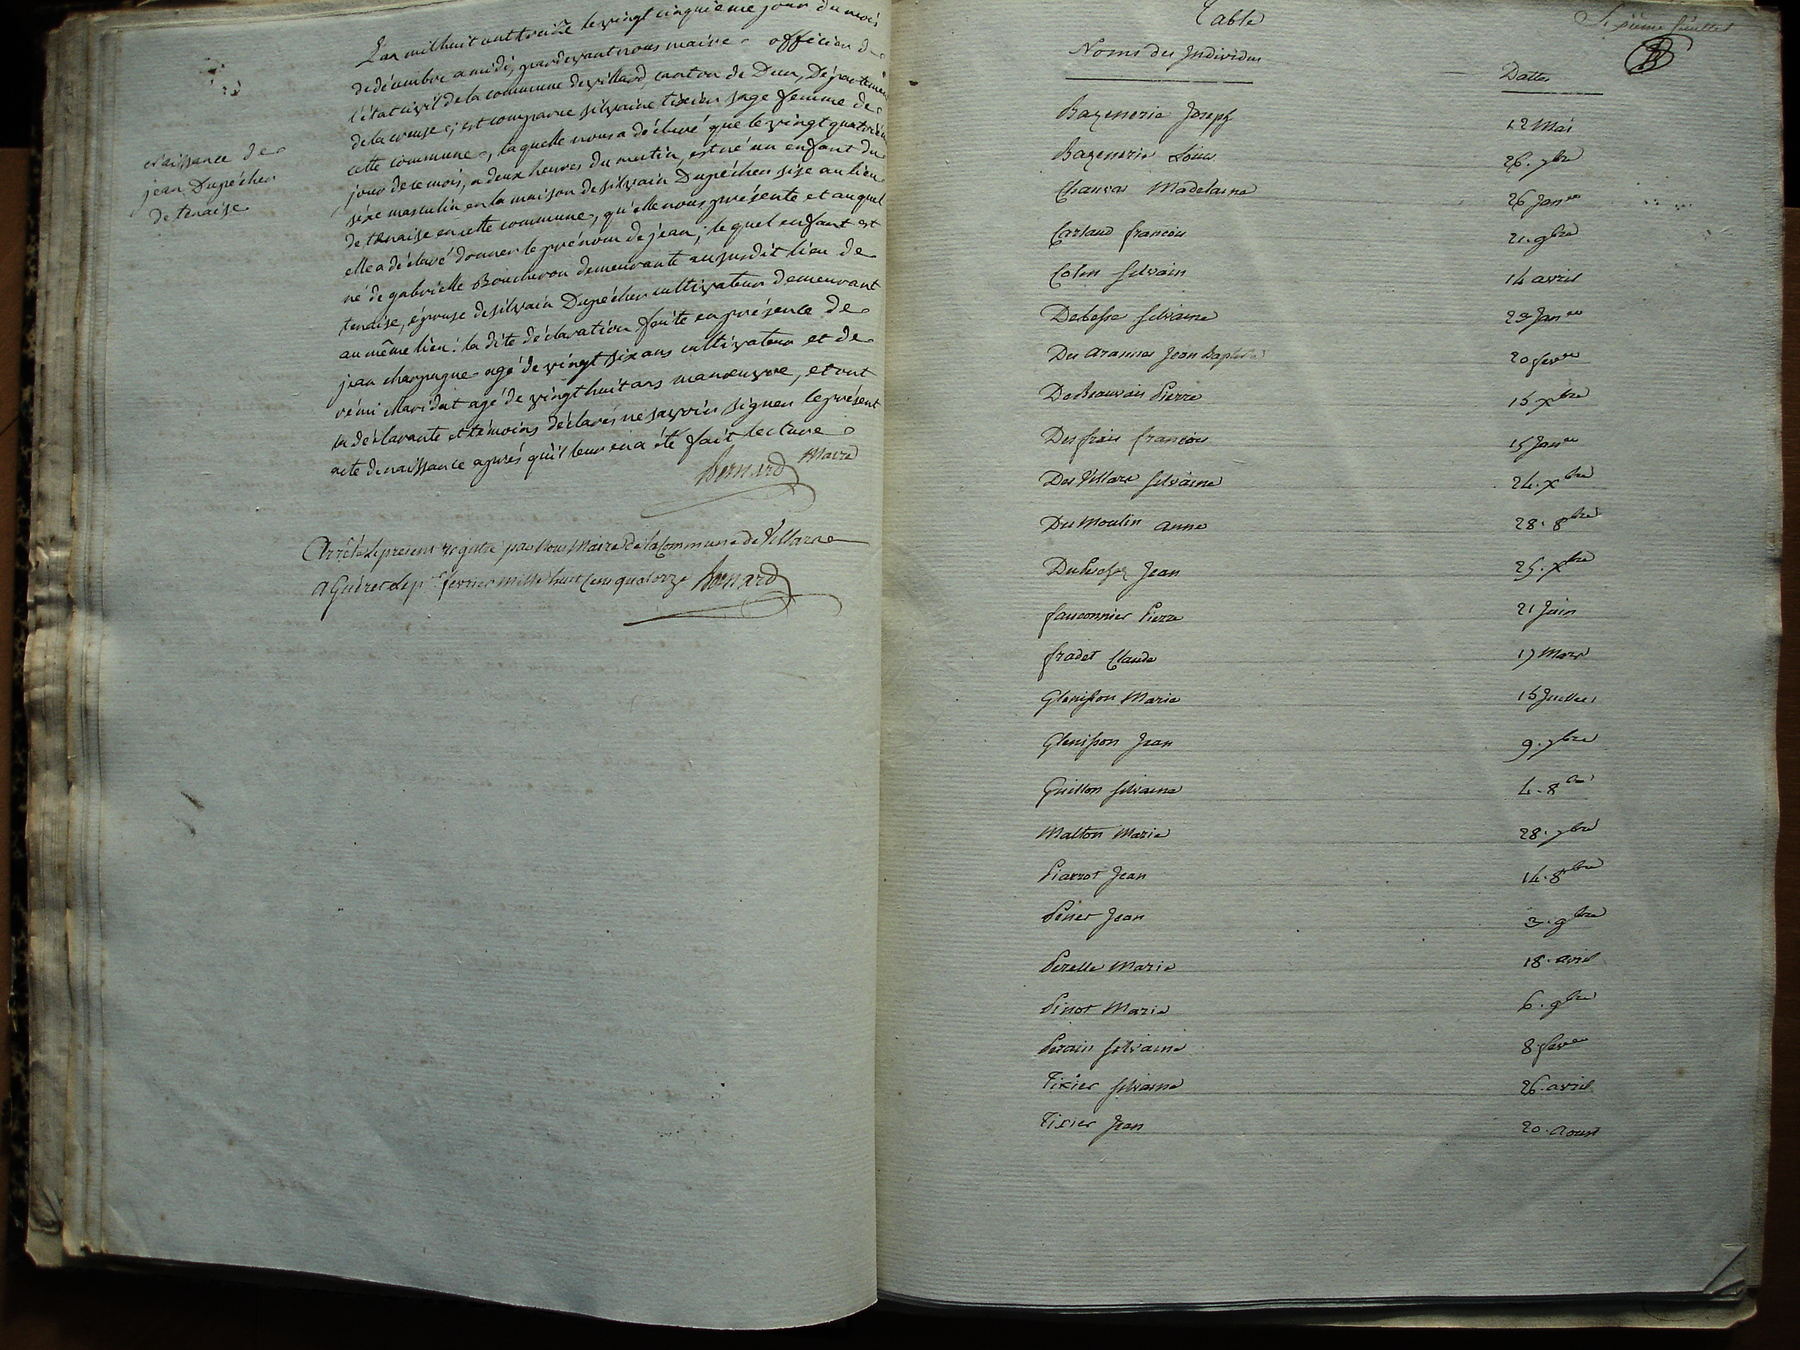 naissance de
jean Dupécher
de tenaise
L'an mil huit cent treize le vingt cinquieme jour du mois
de décembre a midi, pardevant nous maire officier de
l'état civil de la commune de villard, canton de Dun, Département
de la creuse, est comparue silvaine tixier sage femme de
cette commune, laquelle nous a déclaré que le vingt quatrième
jour de ce mois, a deux heures du matin, est né un enfant du
sexe masculin en la maison de silvain Dupécher sise au lieu
de tenaise en cette commune, qu'elle nous présente et auquel
elle a déclaré donner le prénom de jean; le quel enfant est
né de gabrielle Boucheron demeurante au susdit lieu de
tenaise, épouse de silvain Dupécher cultivateur demeurant
au même lieu: la dite déclaration faite en présence de
jean champagne agé de vingt six ans cultivateur et de
rémi Maridat agé de vingt huit ans manœuvre, et ont
la déclarante et témoins déclarés ne sayvoir signer le présent
acte de naissance aprés qu'il leur en a été fait lecture
Bernard Maire
Arrêté le present registre par Nous Maire de la Commune de Villard
a Guéret le p.er fevrier mille huit Cens quatorze Bernard
Sixième feuillet
Table
Noms des Individus Dattes
Bazenerie Joseph 12 Mai
Bazenerie Louis 26. 7bre
Chauvas Madelaine 26 Janer
Carlaud francois 21. 9bre
Colin Silvain 14 avril
Debesse Silvaine 29 Janer
Des arannes Jean Baptiste 20 fever
De Beauvais Pierre 15 Xbre
Desfrais francois 15 Janer
Des Villars Silvaine 24. Xbre
Du Moulin anne 28. 8bre
Dupecher Jean 25. Xbre
fauconnier Pierre 21 Juin
fradet Claude 17 Mars
Glenisson Marie 15 Juillet
Glenisson Jean 9. 7bre
Guillon Silvaine 4. 8bre
Malton Marie 28. 7bre
Piarrot Jean 14. 8bre
Penier Jean 3. 9bre
Perelle Marie 18. avril
Pinot Marie 6. 9bre
Perain Silvaine 8 fever
Tixier Silvaine 26. avril
Tixier Jean 20. Aoust